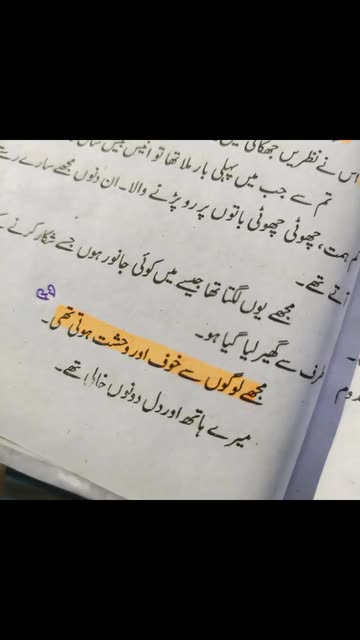 اس نے نظریں جھکائی
تم سے جب میں پہلی بار ملا تھا تو انیس بیس سال
ہمت، چھوٹی چھوٹی باتوں پر رو پڑنے والا۔ ان دنوں مجھے سارے رستے
تے تھے۔
مجھے یوں لگتا تھا جیسے میں کوئی جانور ہوں جسے شکار کرنے کے
طرف سے گھیر لیا گیا ہو۔
مجھے لوگوں سے خوف اور وحشت ہوتی تھی۔
میرے ہاتھ اور دل دونوں خالی تھے۔
دوم